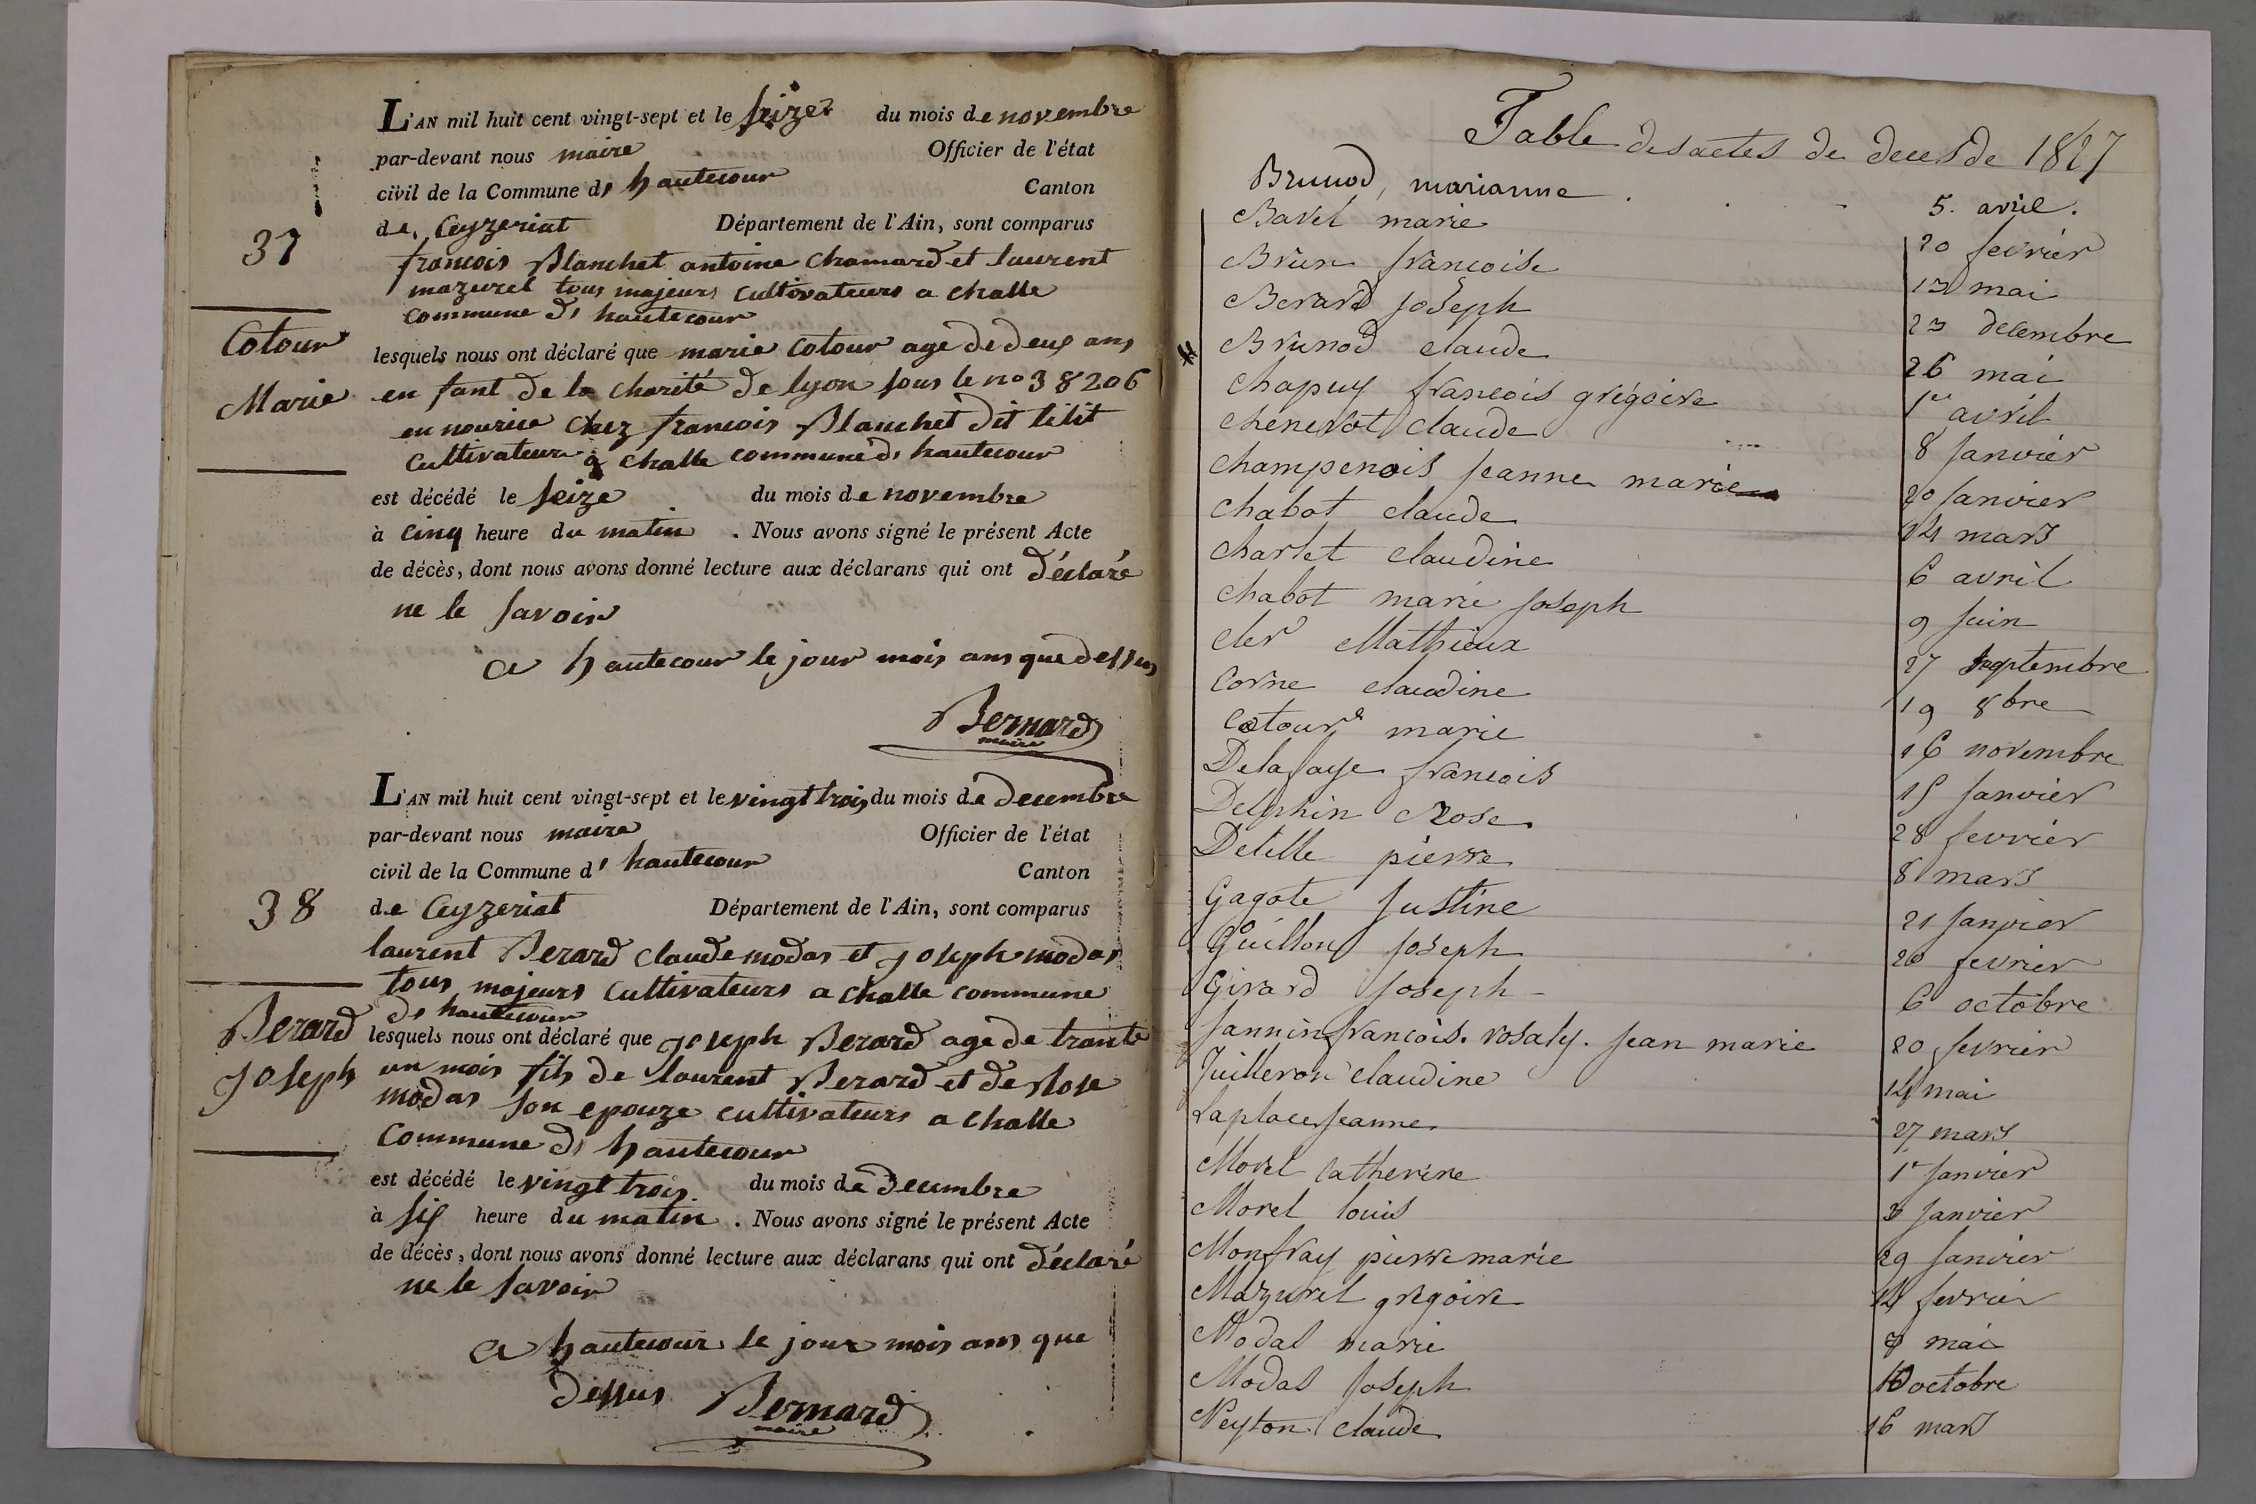 L'AN mil huit cent vingt-sept et le seize du mois de novembre
par-devant nous maire Officier de l'état
civil de la Commune d' hautecour Canton
de Ceyzeriat Département de l'Ain, sont comparus
37
francois Blanchet antoine chamard et laurent
mazurel tous majeurs cultivateurs a challe
commune d' hautecour
Cotour
Marie
lesquels nous ont déclaré que marie cotour age de deux ans
en fant de la charité de lyon sous le no 38206
en nourice chez francois Blanchet dit
cultivateur a challe commune d' hautecour
est décédé le seize du mois de novembre
à cinq heure du matin . Nous avons signé le présent Acte
de décès, dont nous avons donné lecture aux déclarans qui ont déclaré
ne le savoir
a hautecour le jour mois ans que dessus
Bernard
maire
L'AN mil huit cent vingt-sept et le vingt trois du mois de decembre
par-devant nous maire Officier de l'état
civil de la Commune d' hautecour Canton
de Ceyzeriat Département de l'Ain, sont comparus
38
laurent Berard claude modas et joseph modas
tous majeurs cultivateurs a challe commune
d' hautecour
Berard
joseph
lesquels nous ont déclaré que joseph Berard age de trante
un mois fils de laurent Berard et de Rose
modas son epouze cultivateurs a challe
commune d' hautecour
est décédé le vingt trois du mois de decembre
à six heure du matin . Nous avons signé le présent Acte
de décès, dont nous avons donné lecture aux déclarans qui ont déclaré
ne le savoir
a hautecour le jour mois ans que
dessus Bernard
maire
Table des actes de deces de 1827
Brunod, marianne 5. avril.
Bavel marie 20 fevrier
Brun francoise 13 mai
Berard joseph 23 decembre
Brunod claude 26 mai
chapuy francois grégoire 1er avril
chenevot claude 8 janvier
champenois jeanne marie 20 janvier
chabot claude 14 mars
charlet claudine 6 avril
chabot marie joseph 9 juin
cler Mathieux 27 septembre
Corne claudine 19 8bre
cotour marie 16 novembre
Delafaye francois 15 janvier
Delphin Rose 28 fevrier
Delille pierre 8 mars
Gagote justine 21 janvier
Guillon joseph 20 fevrier
Girard joseph 6 octobre
jannin francois. rosaly. jean marie 20 fevrier
juilleron claudine 14 mai
Laplace jeanne 27 mars
Morel catherine 1r janvier
Morel louis 3 janvier
Monfray pierre marie 29 janvier
Mazurel gregoire 14 fevrier
Modas marie mai
Modas joseph 10 octobre
Neyton claude 16 mars